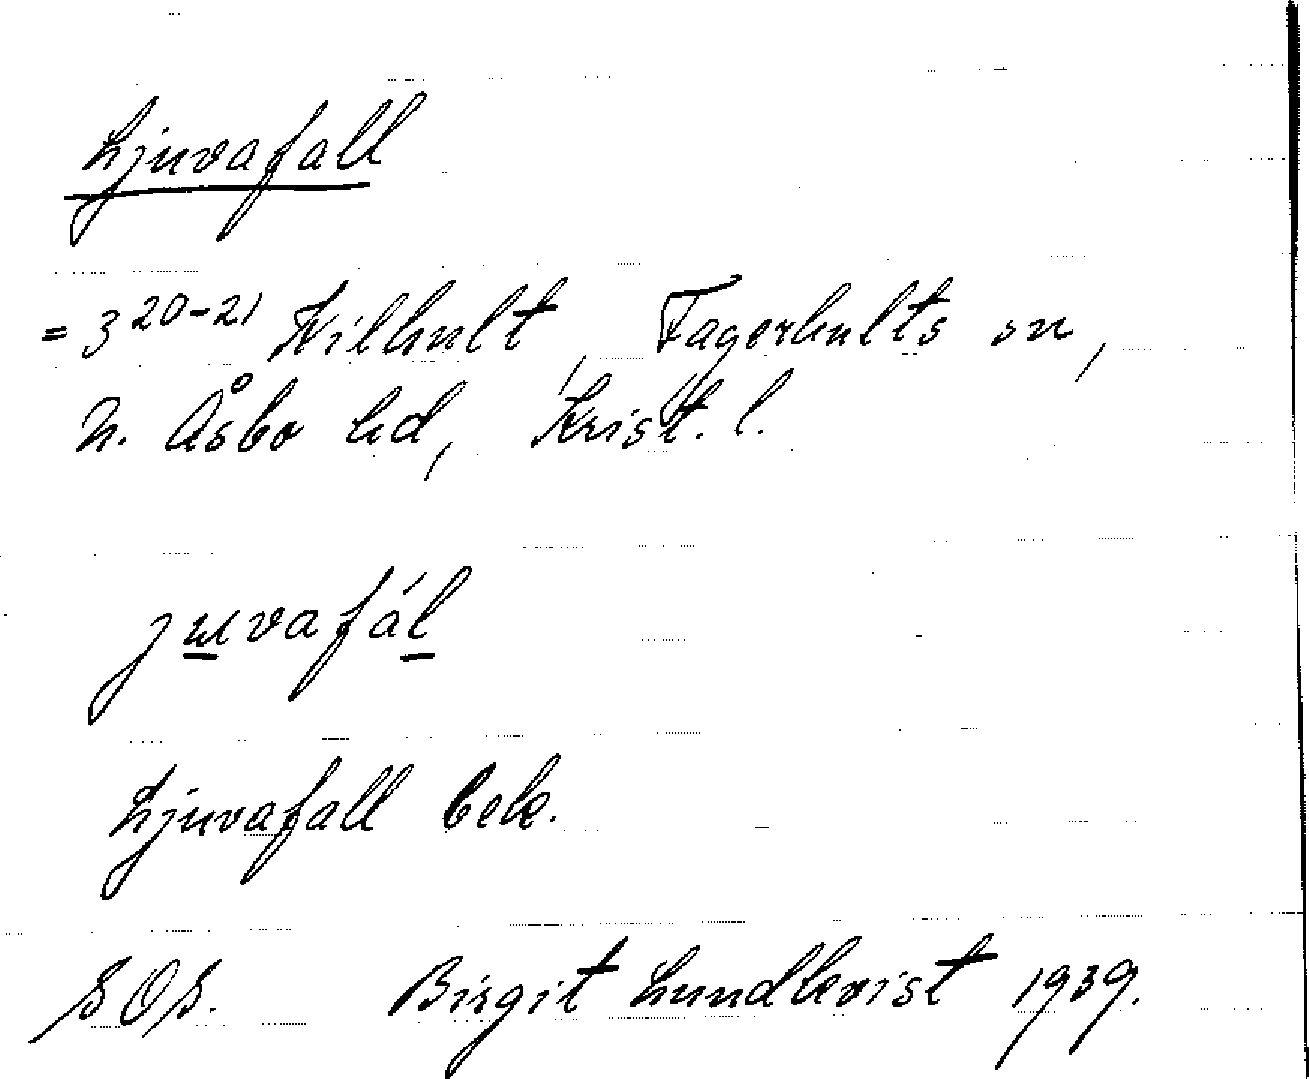 Ljuvafall
= 3 20-21 Hilhult, Fagerhults sn,
N. Åsbo hd, Krist. l.
juvafál
Ljuvafall bek.
SOS. Birgit Lundkvist 1939.